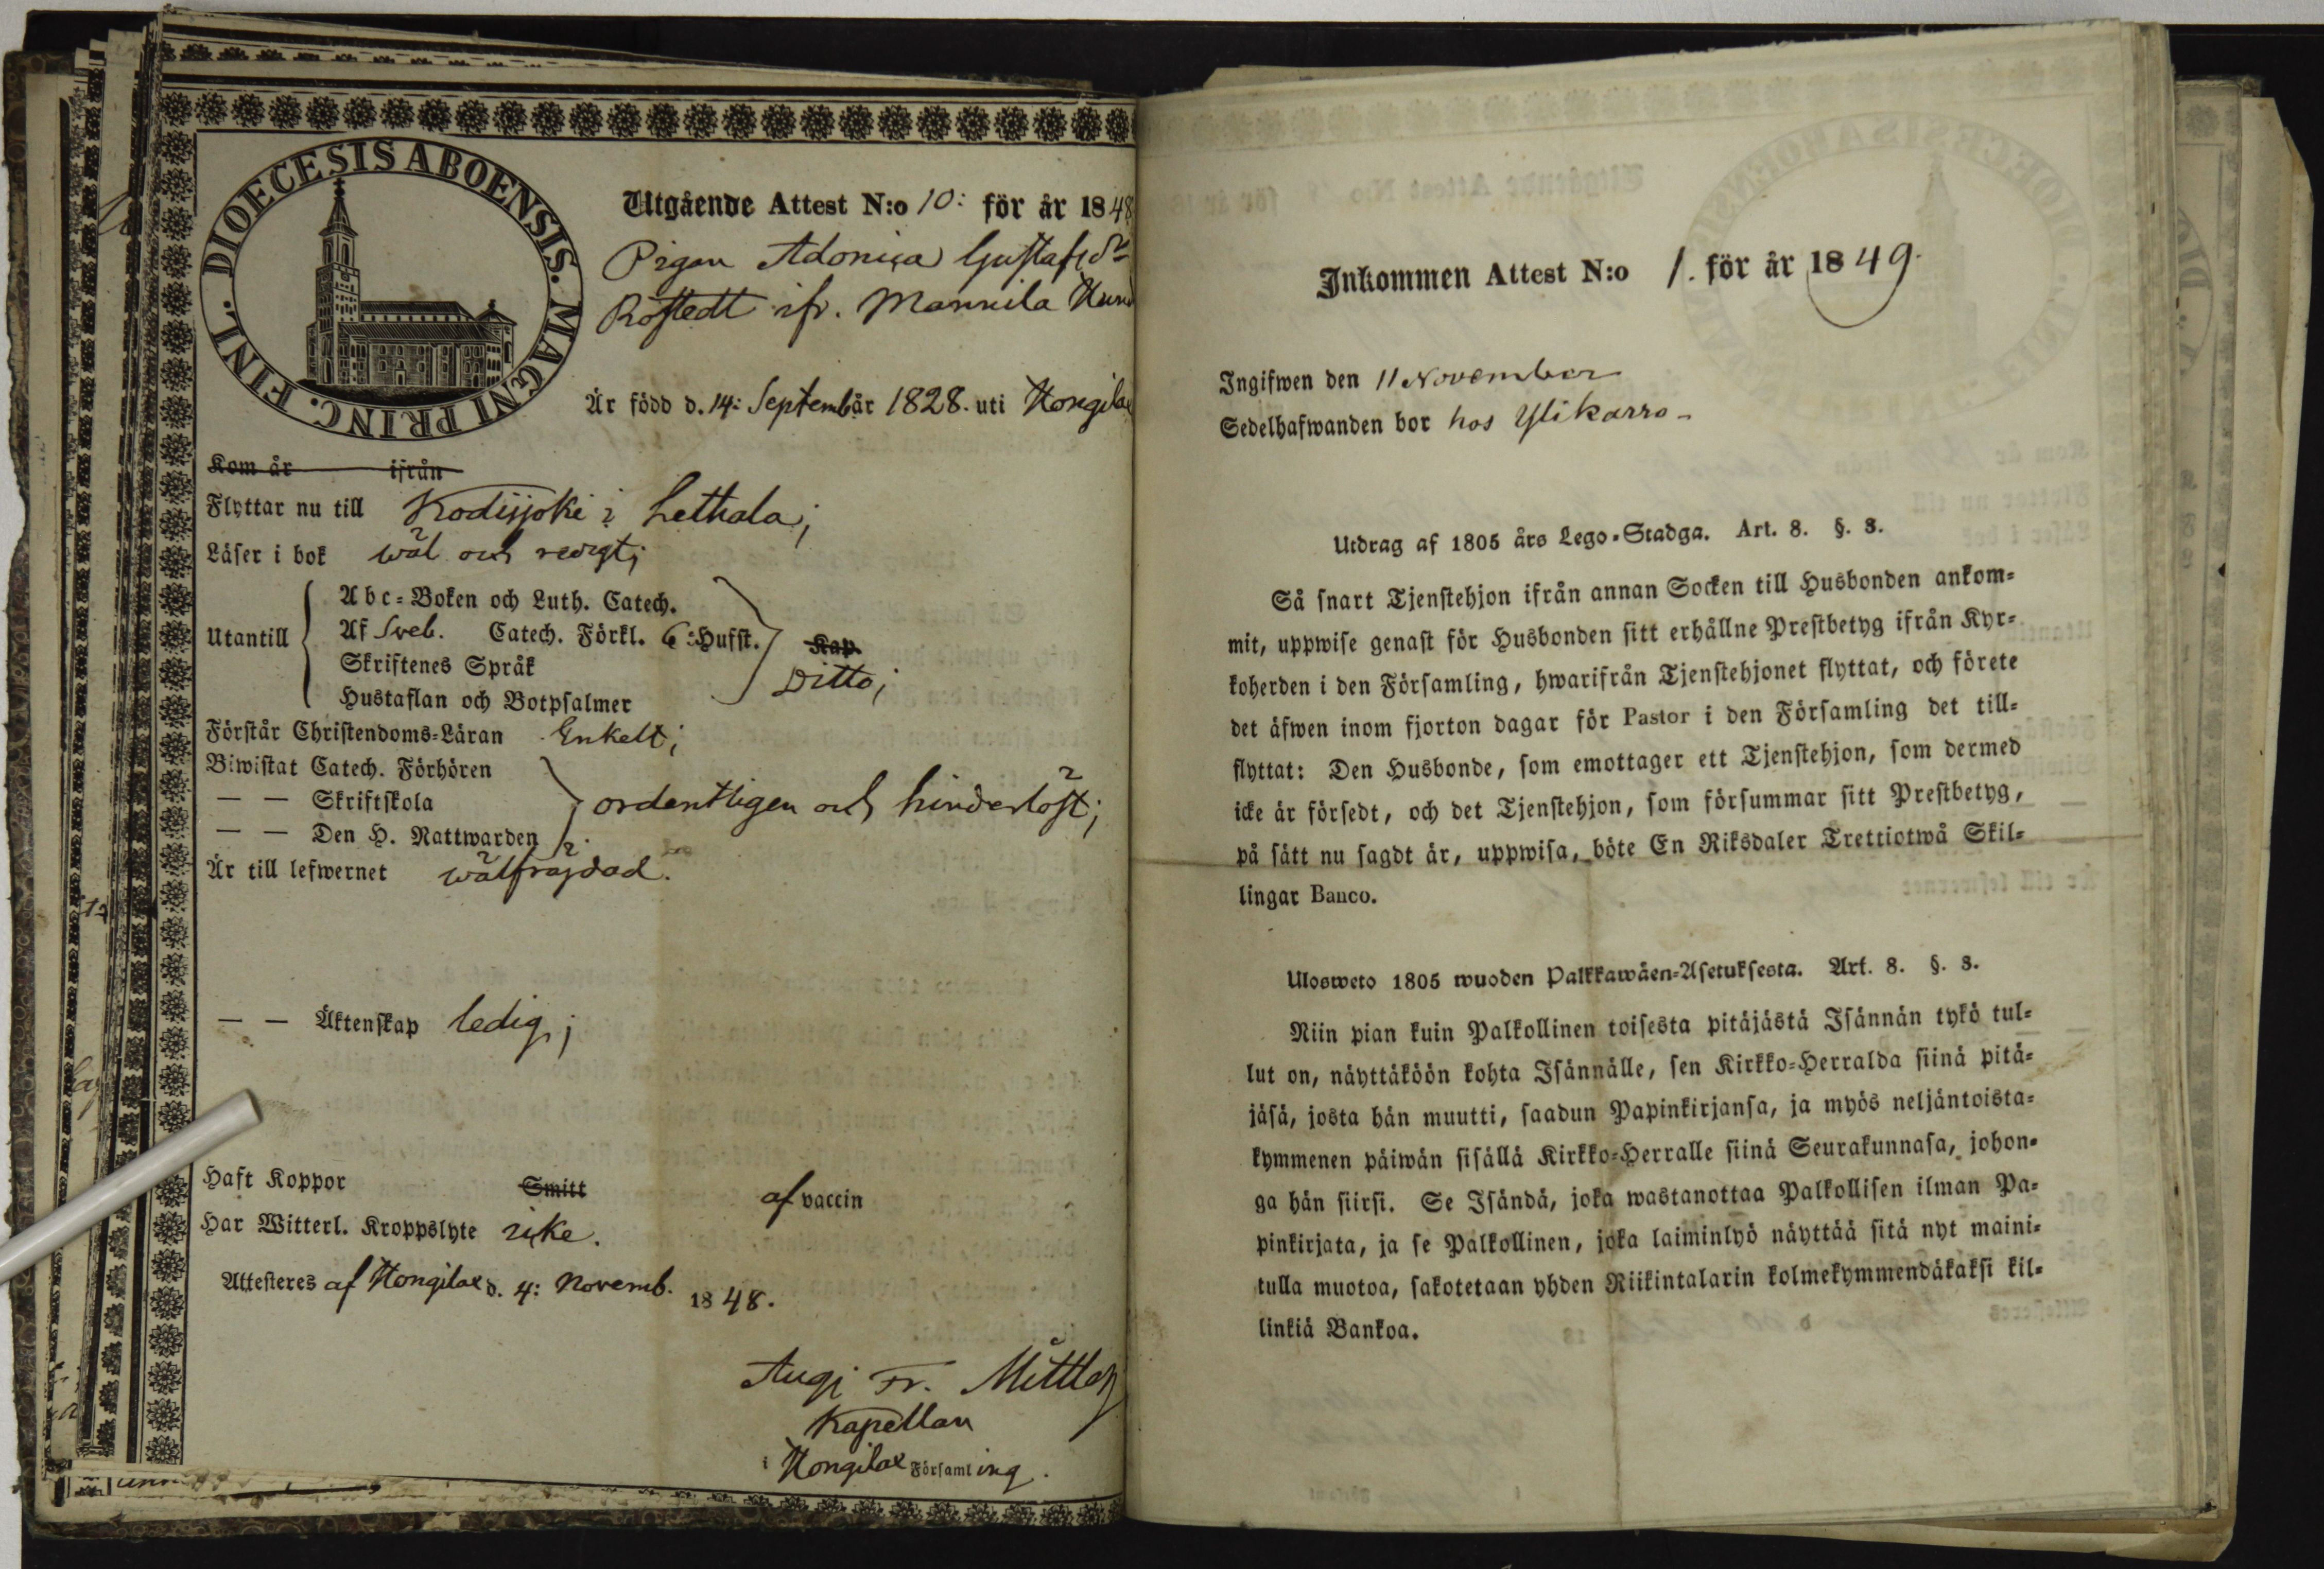 DIOECESIS ABOENSIS. MAGNI PRINC. FINL.
Utgående Attest N:o 10: för år 1848
Pigan Adoniça Gustafsdr
Röstedt ifr. Mannila
Är född d. 14: Septembär 1828. uti Hongilax
Kom år ifrån
Flyttar nu till Kodisjoki i Lethala;
Läser i bok wäl och redigt;
Utantill
Abc-Boken och Luth. Catech.
Af Sveb. Catech. Förkl. 6:Hufst.
Skriftenes Språk
Hustaflan och Botpsalmer
Kap.
Ditto;
Förstår Christendoms-Läran Enkelt;
Biwistat Catech. Förhören
— — Skriftskola
— — Den H. Nattwarden
ordentligen och hinderlöst;
Är till lefwernet wälfrägdad.
— — Äktenskap ledig;
Haft Koppor Smitt af vaccin
Har Witterl. Kroppslyte icke.
Attesteres af Hongilax d. 4: Novemb. 1848.
Fr.
Kapellan
i Hongilax Församling.
Inkommen Attest N:o 1. för år 1849.
Ingifwen den 11 November
Sedelhafwanden bor hos Ylikarro
Utdrag af 1805 års Lego-Stadga. Art. 8. §. 3.
Så snart Tjenstehjon ifrån annan Socken till Husbonden ankom-
mit, uppwise genast för Husbonden sitt erhållne Prestbetyg ifrån Kyr-
koherden i den Församling, hwarifrån Tjenstehjonet flyttat, och förete
det äfwen inom fjorton dagar för Pastor i den Församling det till-
flyttat: Den Husbonde, som emottager ett Tjenstehjon, som dermed
icke är försedt, och det Tjenstehjon, som försummar sitt Prestbetyg,
på sätt nu sagdt är, uppwisa, böte En Riksdaler Trettiotwå Skil-
lingar Banco.
Ulosweto 1805 wuoden Palkkawäen-Asetuksesta. Art. 8. §. 3.
Niin pian kuin Palkollinen toisesta pitäjästä Isännän tykö tul-
lut on, näyttäköön kohta Isännälle, sen Kirkko-Herralda siinä pitä-
jäsä, josta hän muutti, saadun Papinkirjansa, ja myös neljäntoista-
kymmenen päiwän sisällä Kirkko-Herralle siinä Seurakunnasa, johon-
ga hän siirsi. Se Isändä, joka wastanottaa Palkollisen ilman Pa-
pinkirjata, ja se Palkollinen, joka laiminlyö näyttää sitä nyt maini-
tulla muotoa, sakotetaan yhden Riikintalarin kolmekymmendäkaksi kil-
linkiä Bankoa.